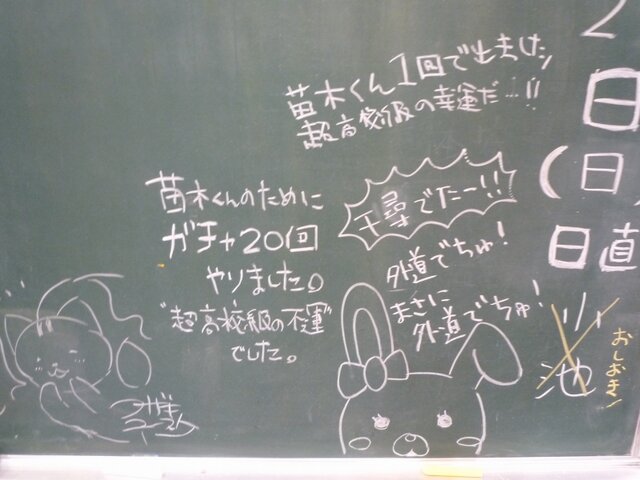 苗木くん1回で出ましたッ
超高校級の幸運だ…!!
苗木くんのために
ガチャ20回
やりました。
"超高校級の不運"
でした。
千尋でたー!!
外道でちゅ!
まさに
外道でちゅ!
2
日
(日
日直
小
池
おしおき